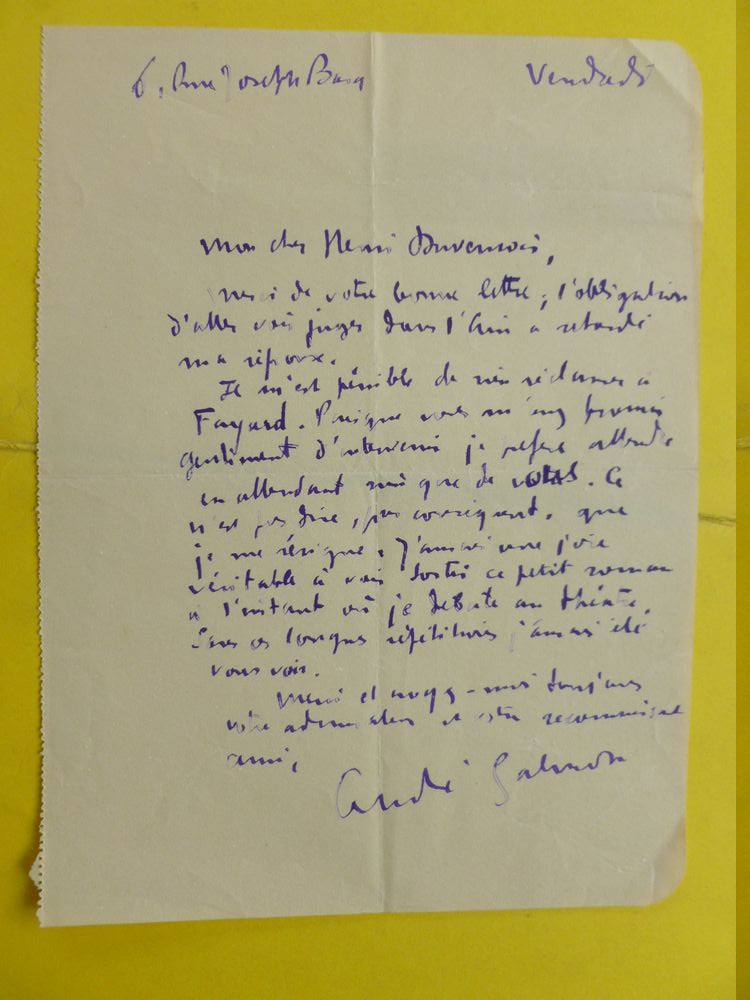 6, Rue Joseph Bara Vendredi
Mon cher Henri Duvernois,
merci de votre bonne lettre ; l'obligation
d'aller voir juger dans l'Ain a retardé
ma réponse.
Il m'est pénible de rien réclamer à
Fayard. Puisque vous m'avez promis
gentiment d'intervenir je préfère attendre
en attendant que de vous. Ce
n'est pas dire, par conséquent, que
je me résigne. J'aurais une joie
véritable à voir sortir ce petit roman
à l'instant où je débute au théâtre.
Sans ces longues répétitions j'aurais été
vous voir.
Merci et croyez-moi toujours
votre admirateur et votre reconnaissant
ami,
André Salmon